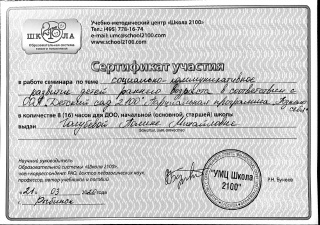 ШКОЛА
Образовательная система
Учебно-методический центр «Школа 2100»
Тел.: (495) 778-16-74
e-mail: umc@school2100.com
www.school2100.com
Сертификат участия
в работе семинара по теме социально-коммуникативное
развитие детей раннего возраста в соответствии с
"Детский сад 2100" Парциальная программа "Познаю
себя"
в количестве 8 (16) часов для ДОО, начальной (основной, старшей) школы
выдан Полине Михайловне
фамилия, имя, отчество
Научный руководитель
Образовательной системы «Школа 2100»,
член-корреспондент РАО, доктор педагогических наук,
профессор
"УМЦ Школа
2100"
Р.Н. Бунеев
21 03
г. Рыбинск